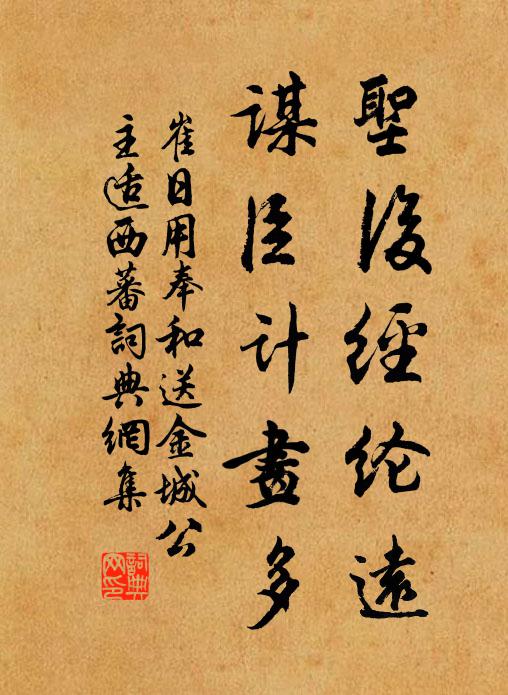 聖後經纶遠
謀臣计畫多
崔日用奉和送金城公
主适西蕃詞典網集
詞典网印